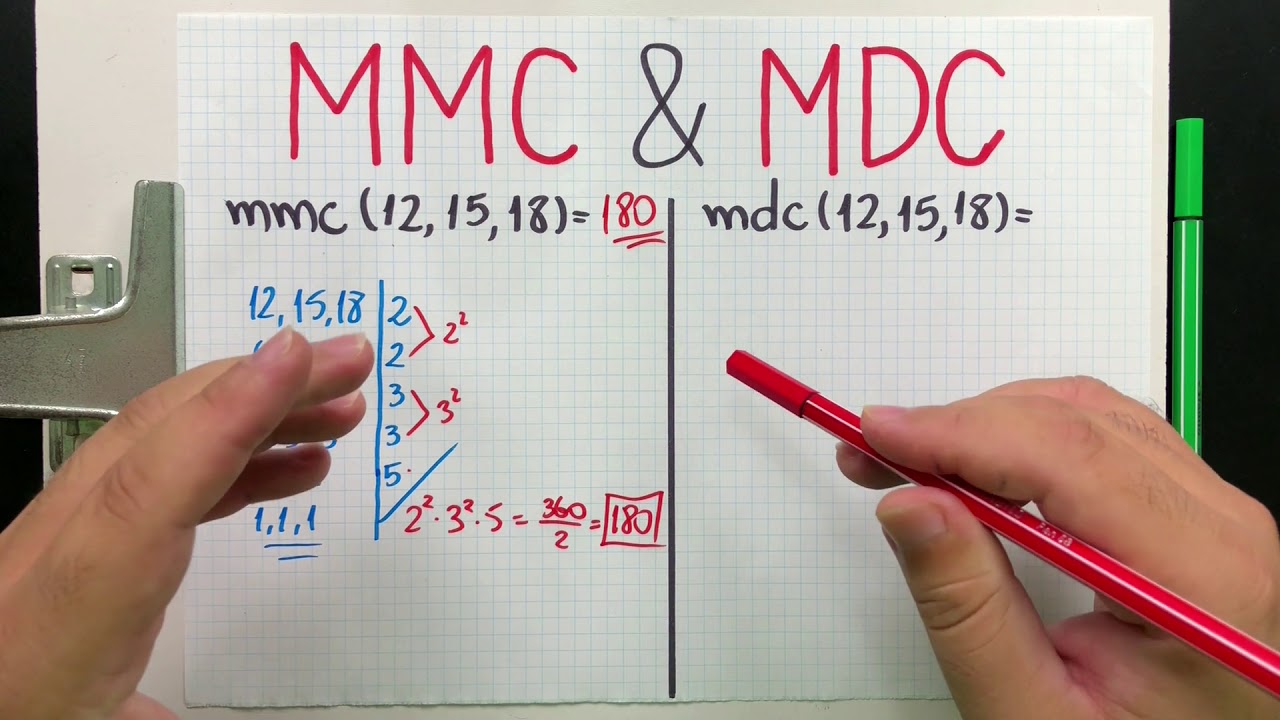 MMC & MDC
mmc (12, 15, 18) = 180
12, 15, 18 | 2
2
2²
3
3
3²
5
1, 1, 1
2² · 3² · 5 = 360/2 = 180
mdc (12, 15, 18) =